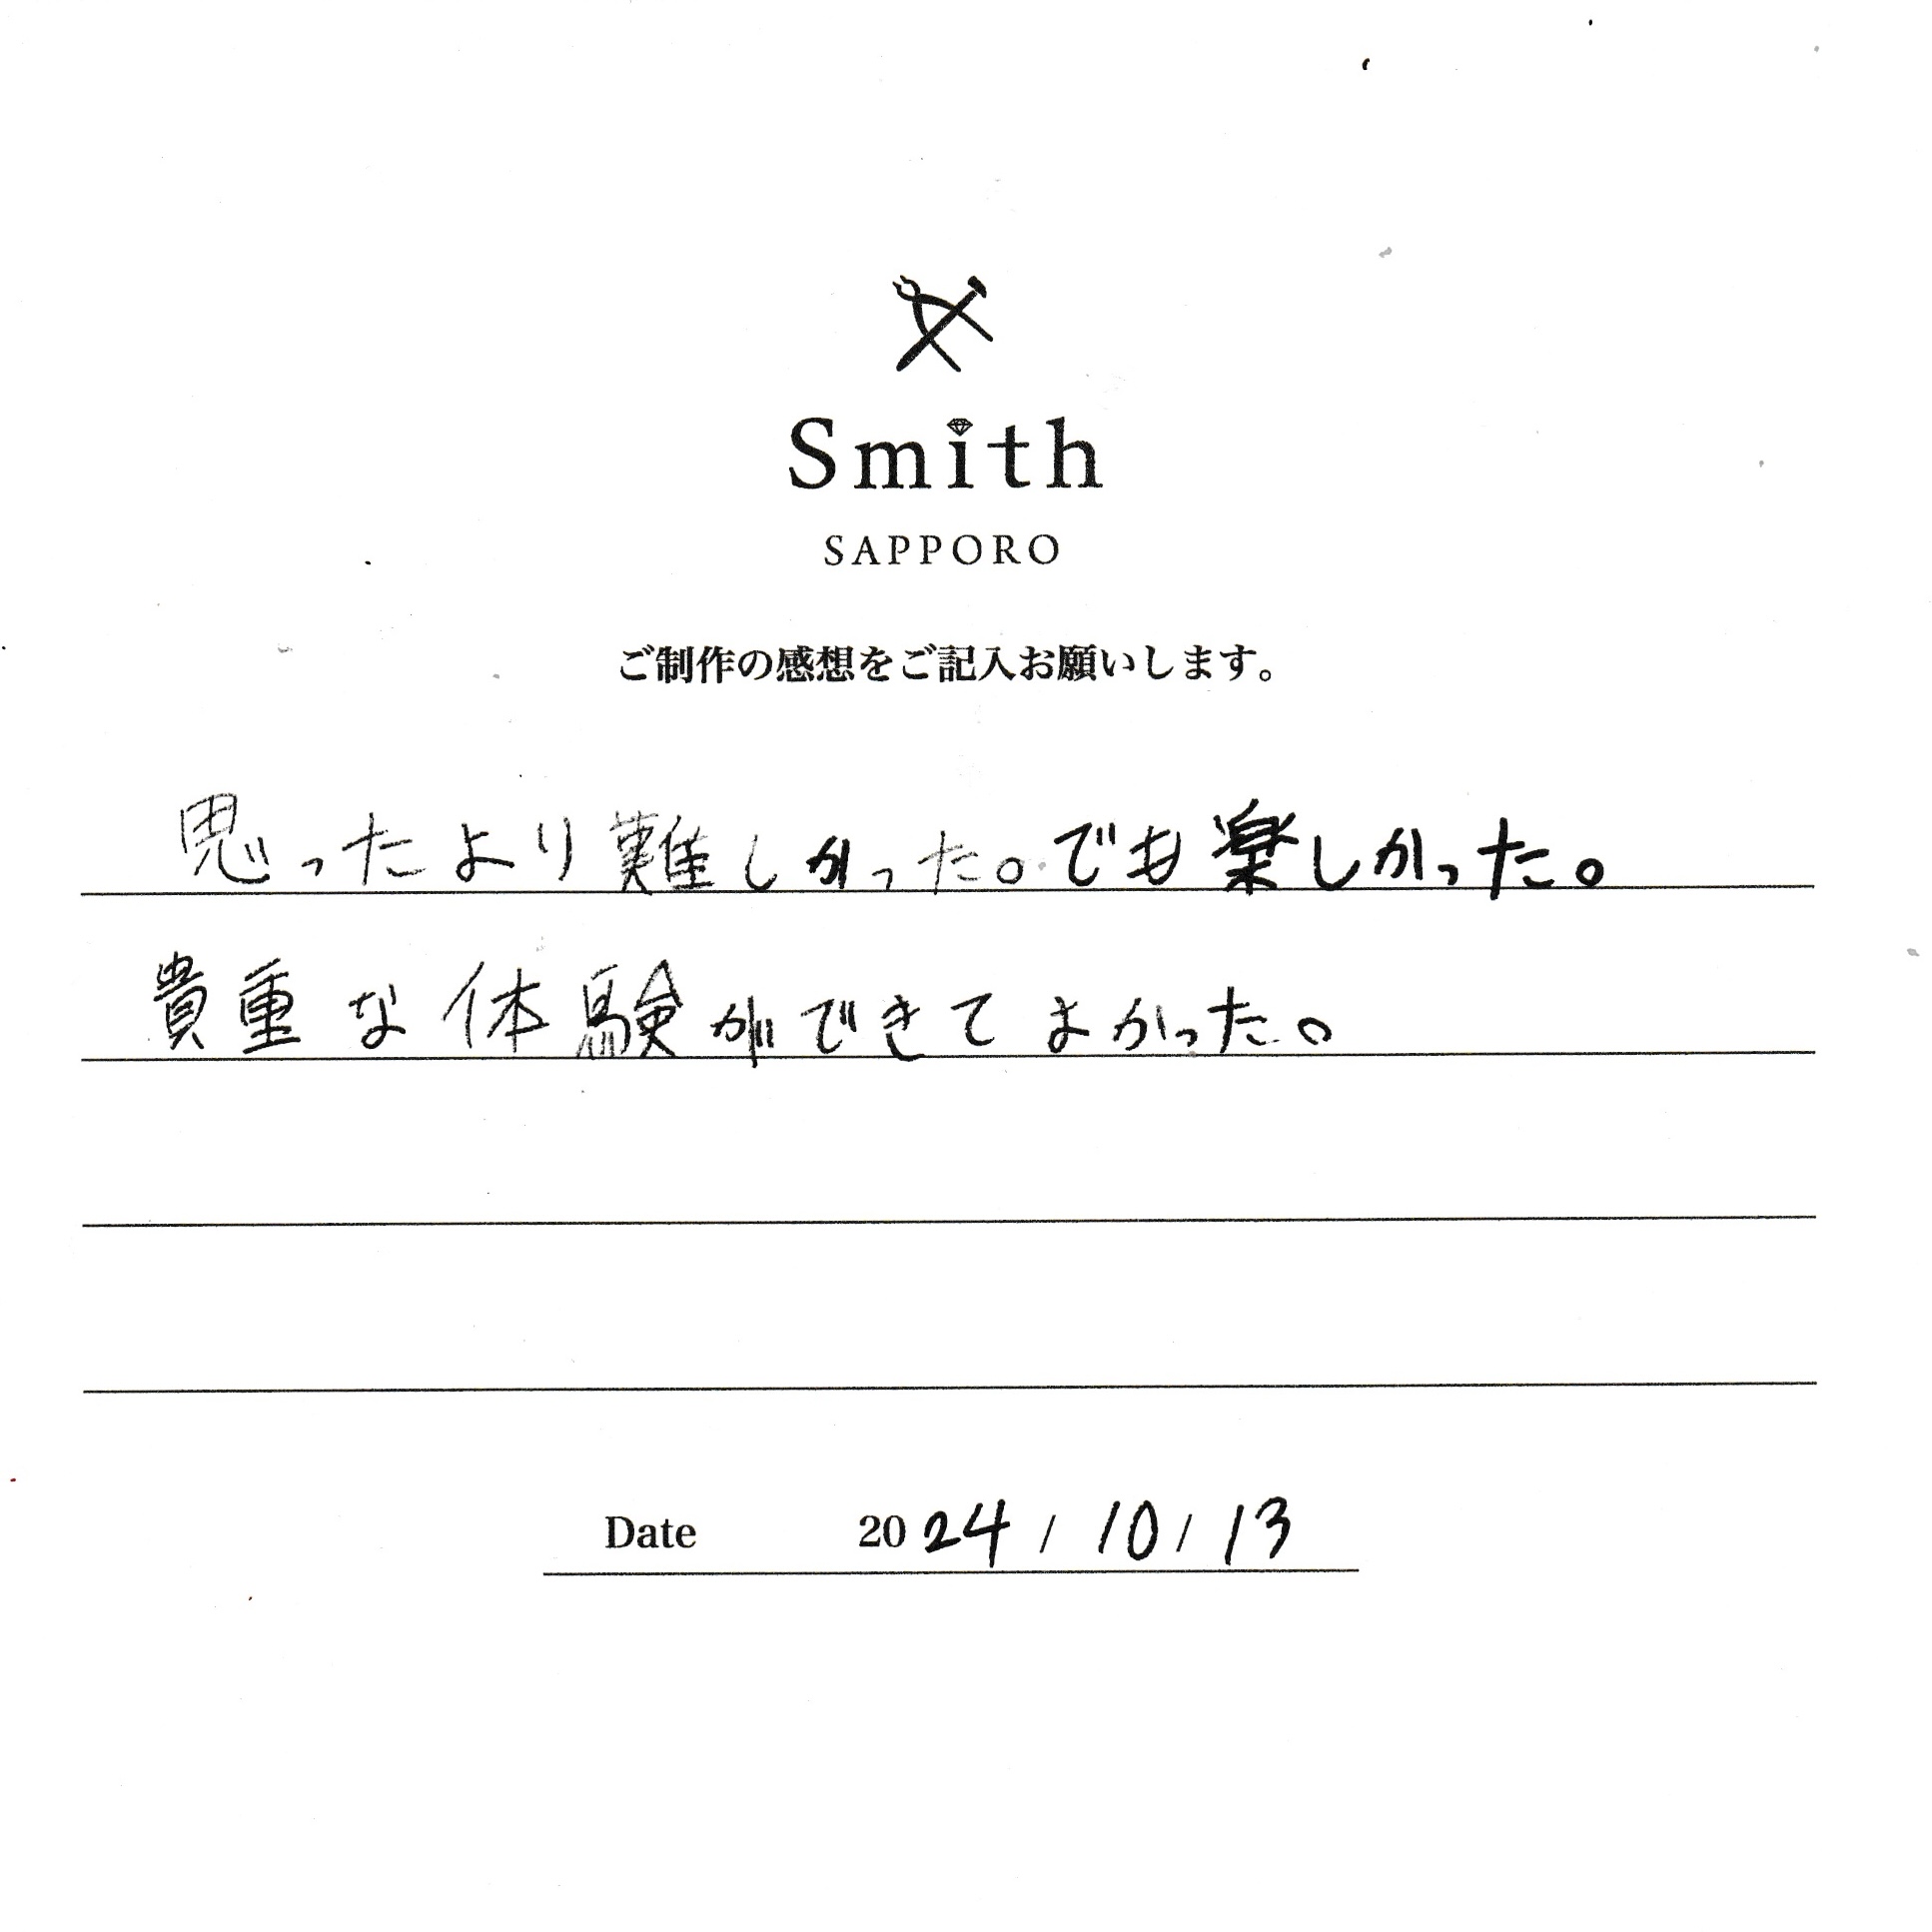 Smith
SAPPORO
ご制作の感想をご記入お願いします。
思ったより難しかった。でも楽しかった。
貴重な体験ができてよかった。
Date 2024 / 10 / 13